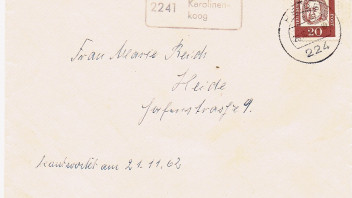 2241 Karolinen-
koog
20
224
Frau Marie Reich
Heide
Hafenstraße 9.
beantwortet am 21.11.62